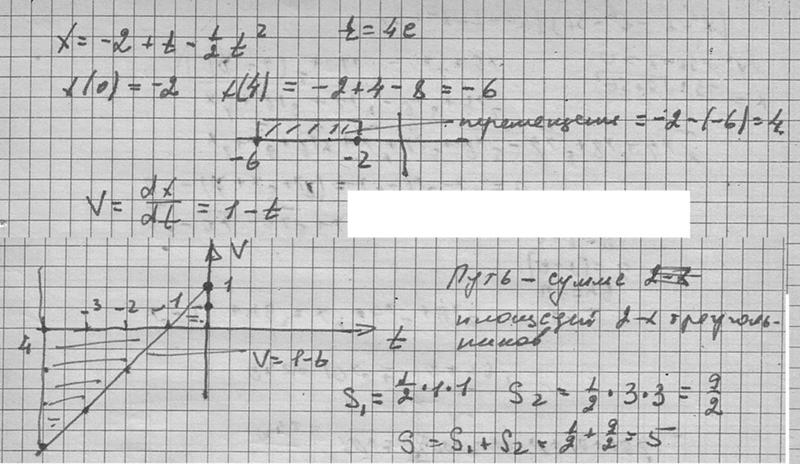 x = -2 + t - 1/2 t²   t = 4c
x(0) = -2   x(4) = -2+4-8 = -6
перемещение = -2-(-6)=4
-6   -2
V = dx/dt = 1-t
V
1
-3   -2   -1
4   t
V=1-t
Путь - сумма 2-х
площадей 2-х треуголь-
ников
S₁ = 1/2 · 1 · 1   S₂ = 1/2 · 3 · 3 = 9/2
S = S₁ + S₂ = 1/2 + 9/2 = 5